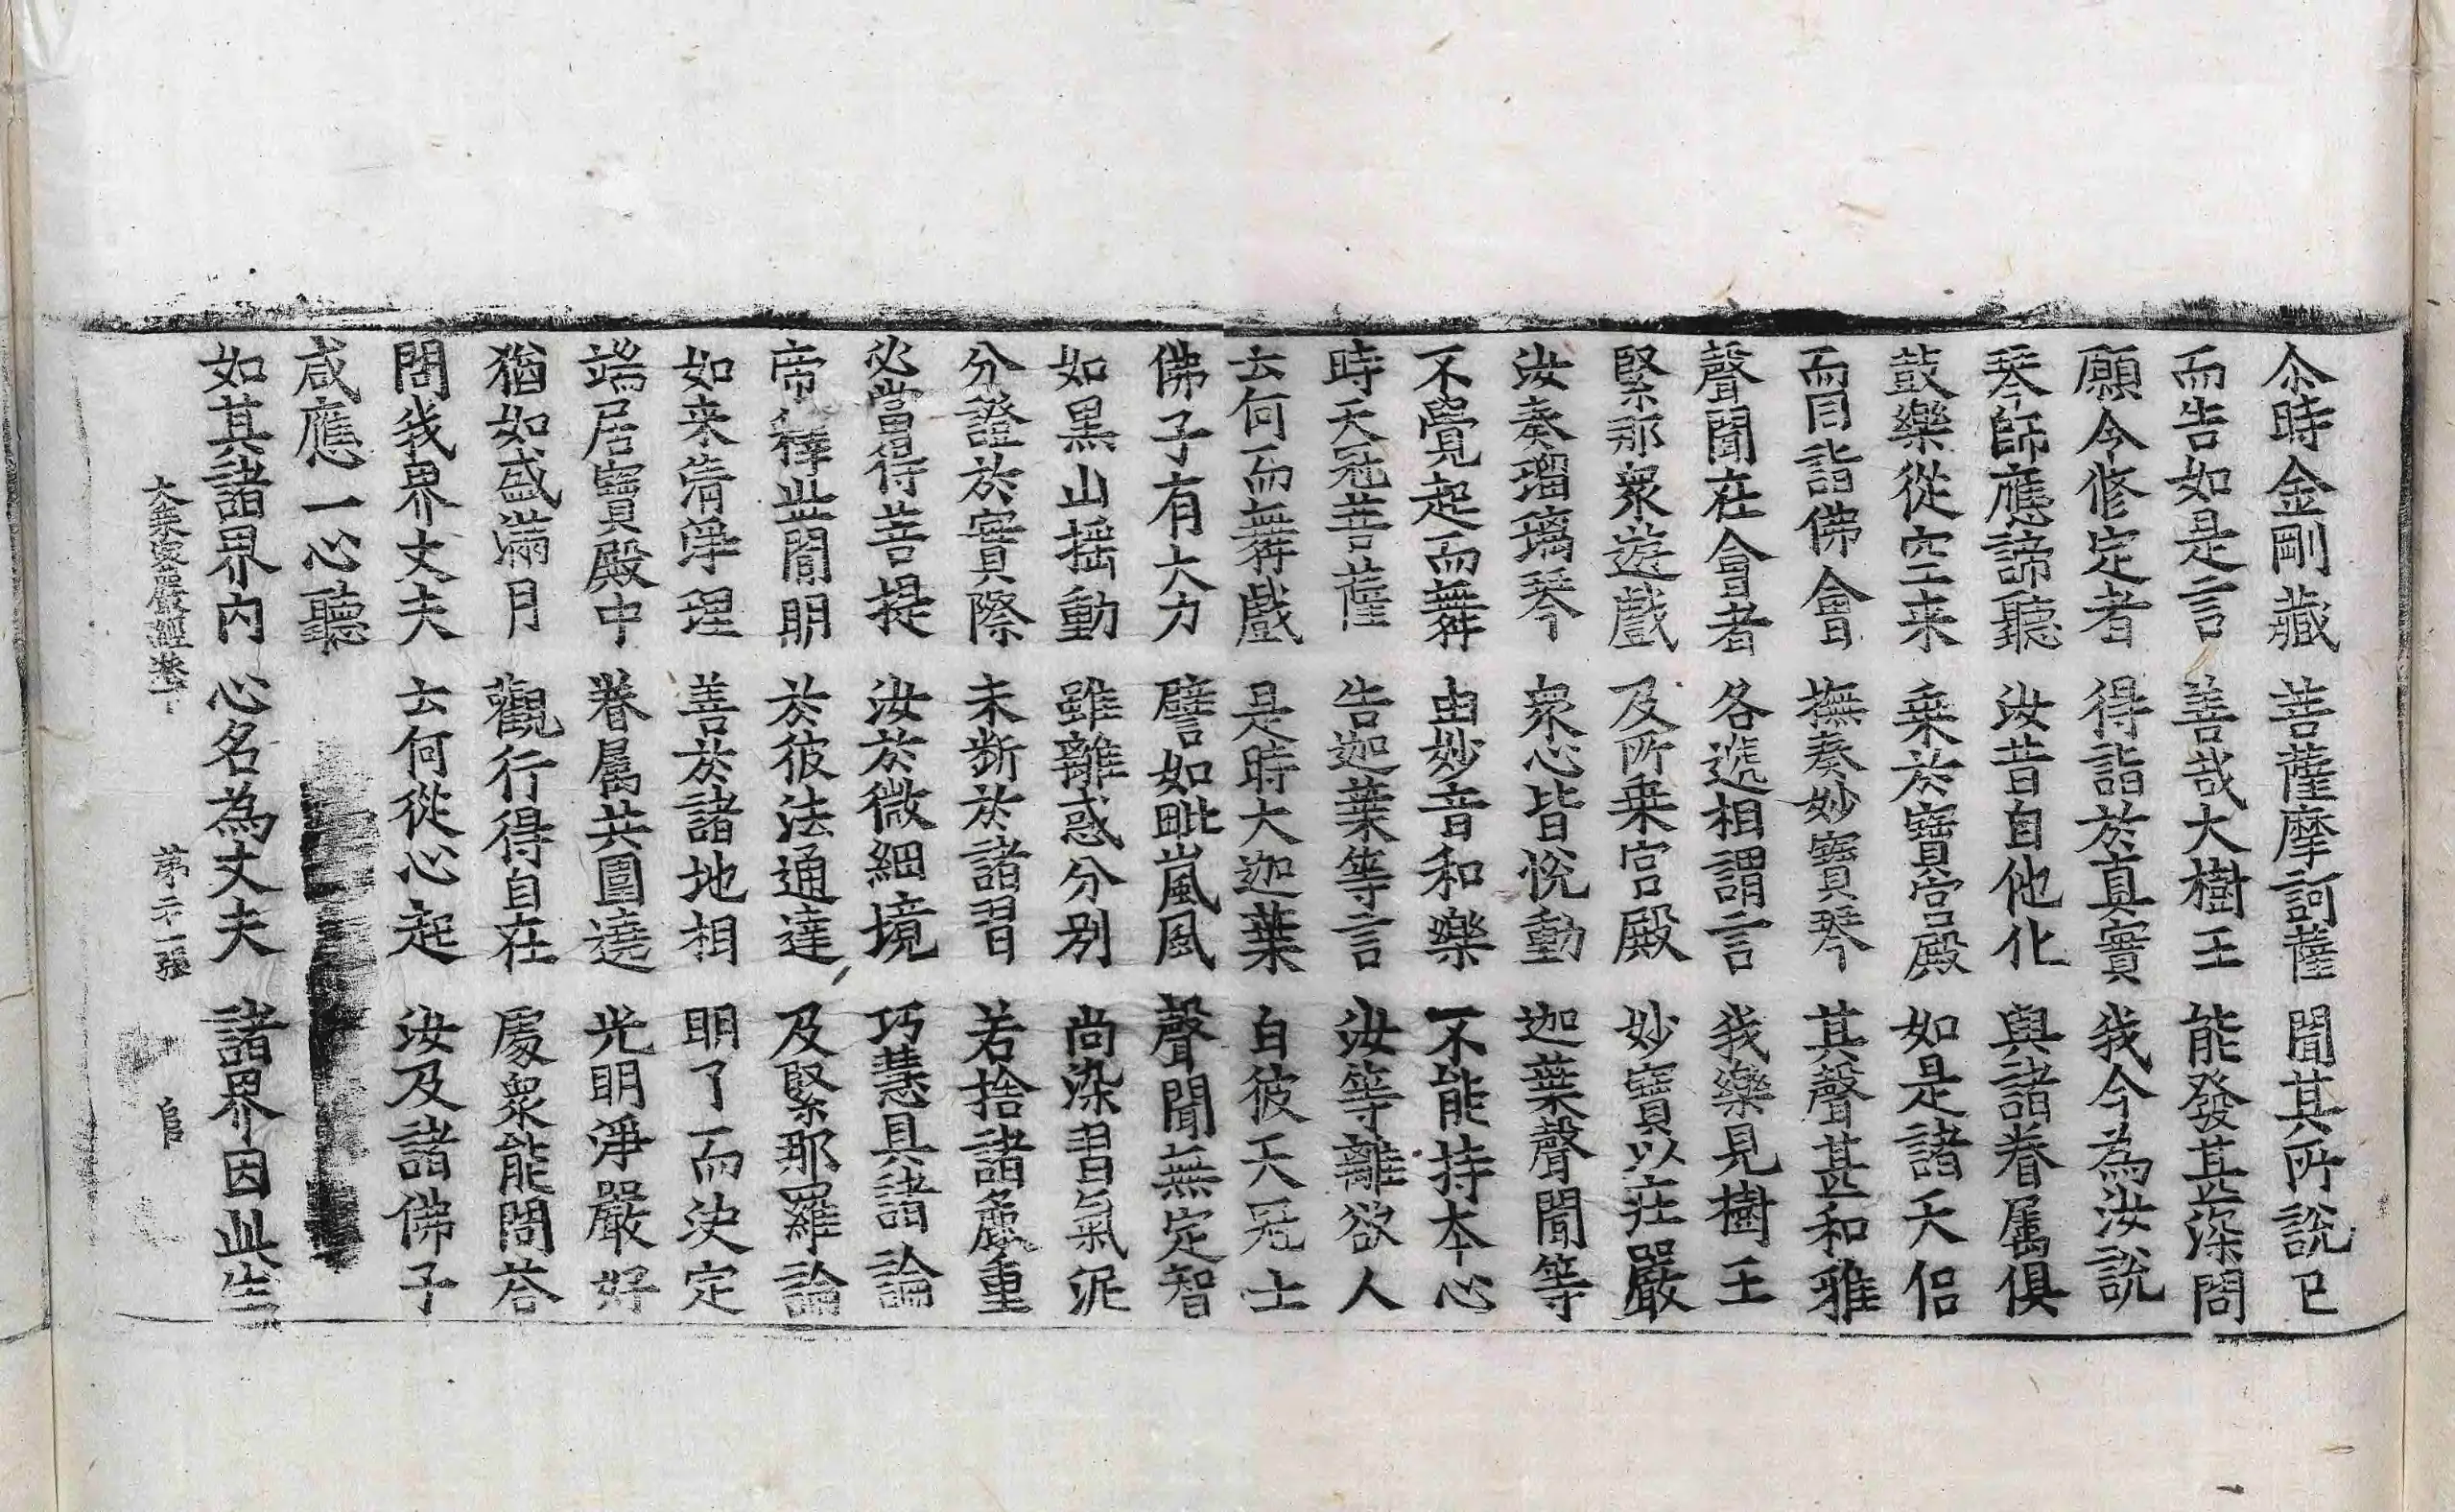 尒時金剛藏 菩薩摩訶薩 聞其所說已
而告如是言 善哉大樹王 能發甚深問
願令修定者 得詣於真實 我今為汝說
琴師應諦聽 汝昔自他化 與諸眷属俱
鼓樂從空来 乗於寶宫殿 如是諸天侣
而同詣佛會 撫奏妙寶琴 其聲甚和雅
聲聞在會者 各遞相謂言 我樂見樹王
緊那衆遊戲 及所乗宫殿 妙寶以莊嚴
汝奏瑠璃琴 衆心皆悅動 迦葉聲聞等
不覺起而舞 由妙音和樂 不能持本心
時天冠菩薩 告迦葉等言 汝等離欲人
云何而舞戲 是時大迦葉 白彼天冠士
佛子有大力 譬如毗嵐風 聲聞無定智
如黒山摇動 雖離惑分别 尚染習氣泥
分證於實際 未斷於諸習 若捨諸麁重
必當得菩提 汝於微細境 巧慧具諸論
帝釋世間明 於彼法通達 及緊那羅論
如来清淨理 善於諸地相 明了而決定
端居寶殿中 眷属共圍遶 光明淨嚴好
猶如盛滿月 觀行得自在 處衆能問荅
問我界丈夫 云何從心起 汝及諸佛子
咸應一心聽
如其諸界内 心名為丈夫 諸界因此生
大乗密嚴經卷下 第二十一張